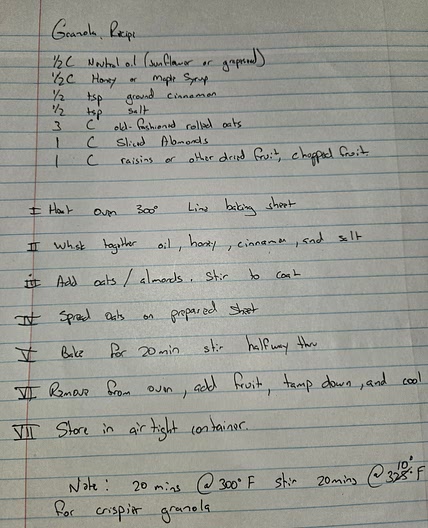 Granola Recipe
½ C Neutral oil (sunflower or grapeseed)
½ C Honey or Maple Syrup
½ tsp ground cinnamon
½ tsp salt
3 C old-fashioned rolled oats
1 C Sliced Almonds
1 C raisins or other dried fruit, chopped fruit
I Heat oven 300° Line baking sheet
II Whisk together oil, honey, cinnamon, and salt
III Add oats / almonds. Stir to coat
IV Spread oats on prepared sheet
V Bake for 20 min stir halfway thru
VI Remove from oven, add fruit, tamp down, and cool
VII Store in air tight container.
Note: 20 mins @ 300° F stir 20 mins @ 325° F
for crispier granola